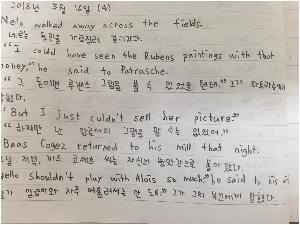 2018년 5월 16일 (수)
Nelo walked away across the fields.
네로는 들판을 가로질러 걸어갔다.
"I could have seen the Rubens paintings with that
money," he said to Patrasche.
"그 돈이면 루벤스 그림을 볼 수 있었을 텐데." 그가 파트라슈에게
했다.
"But I just culdn't sell hur picture."
"하지만 난 알로아의 그림을 팔 수는 없었어."
Baas Cogez returned to his mill that night.
날 저녁, 바스 코제츠 씨는 자신의 방앗간으로 돌아왔다.
Nello shouldn't play with Alois so much," he said to his
가 알로아와 자주 어울려서는 안 돼." 그가 그의 부인에게 말했다.